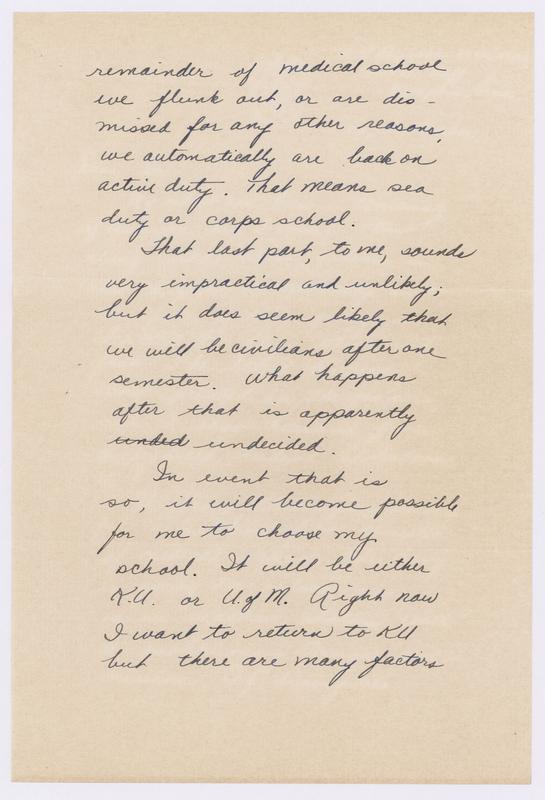 remainder of medical school
we flunk out, or are dis-
missed for any other reasons,
we automatically are back on
active duty. That means sea
duty or corps school.
That last part, to me, sounds
very impractical and unlikely;
but it does seem likely that
we will be civilians after one
semester. What happens
after that is apparently
unded undecided.
In event that is
so, it will become possible
for me to choose my
school. It will be either
K.U. or U. of M. Right now
I want to return to KU
but there are many factors